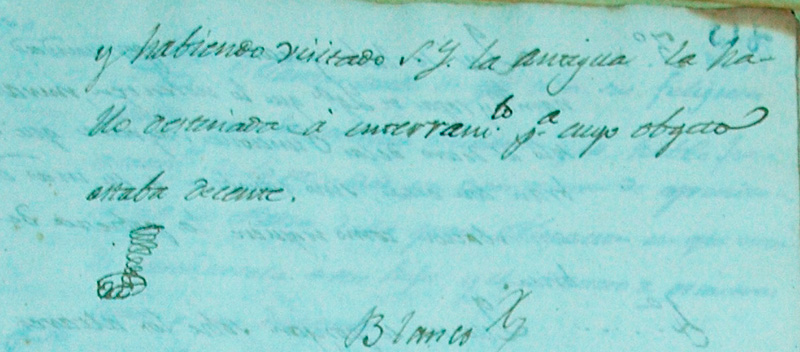 y habiendo visitado S. Y. la antigua la ha-
llo destinada à enterram.to p.a cuyo objeto
estaba decente.
Blanco